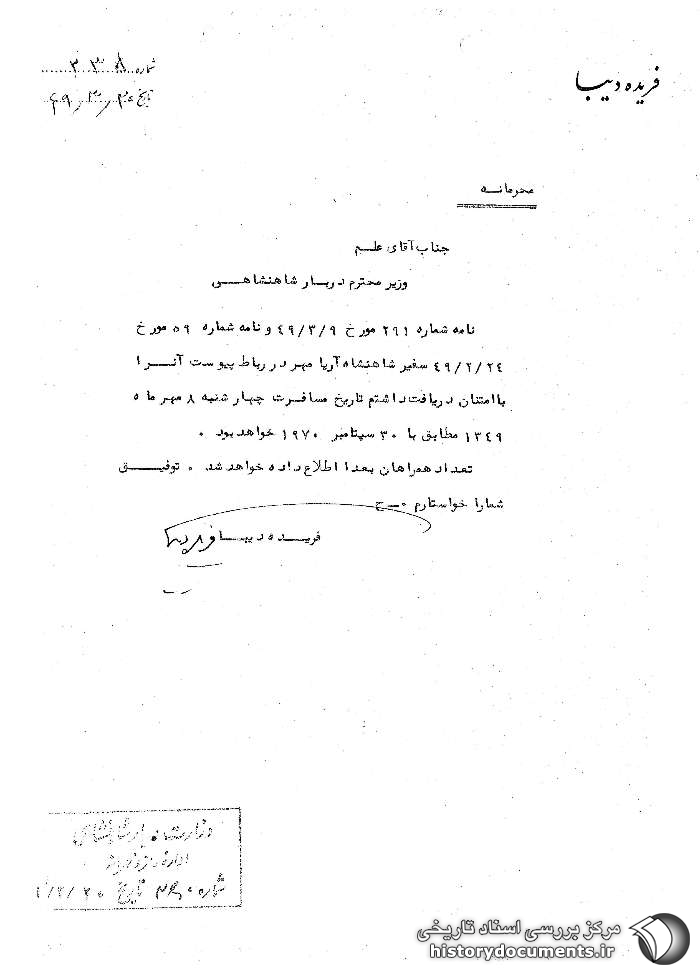 فریده دیبا
شماره ۲۳۸
تاریخ ۴۹/۳/۲۰
محرمانه
جناب آقای علم
وزیر محترم دربار شاهنشاهی
نامه شماره ۲۹۱ مورخ ۴۹/۳/۹ و نامه شماره ۵۹ مورخ
۴۹/۲/۲۴ سفیر شاهنشاه آریا مهر در رباط پیوست آنرا
با امتنان دریافت داشتم تاریخ مسافرت چهارشنبه ۸ مهر ماه
۱۳۴۹ مطابق با ۳۰ سپتامبر ۱۹۷۰ خواهد بود .
تعداد همراهان بعدا اطلاع داده خواهد شد . توفیق
شما را خواستارم . ح
فریده دیبا
وزارت دربار شاهنشاهی
اداره
شماره تاریخ
مرکز بررسی اسناد تاریخی
historydocuments.ir